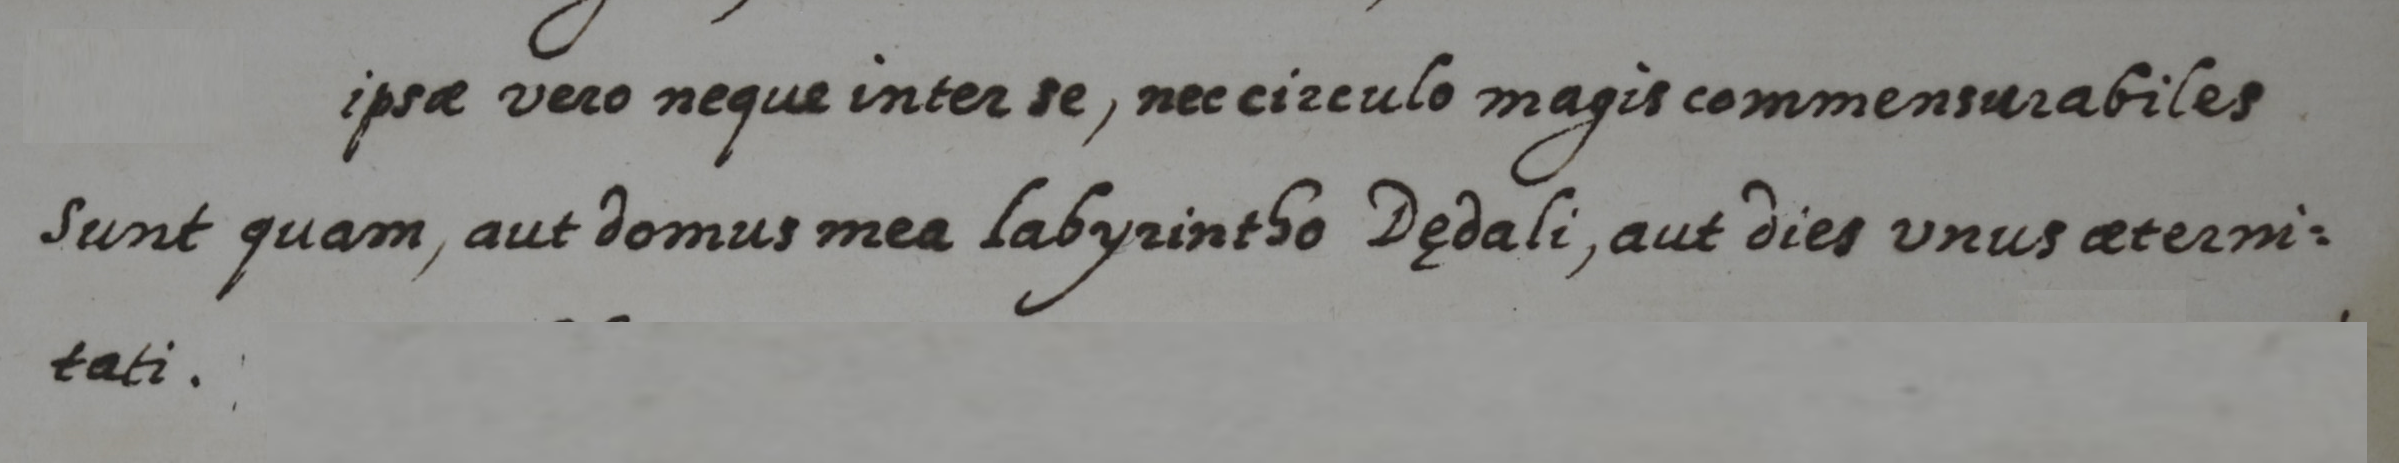 ipsæ vero neque inter se, nec circulo magis commensurabiles
Sunt quam, aut domus mea labyrintho Dędali, aut dies vnus æterni:
tati.